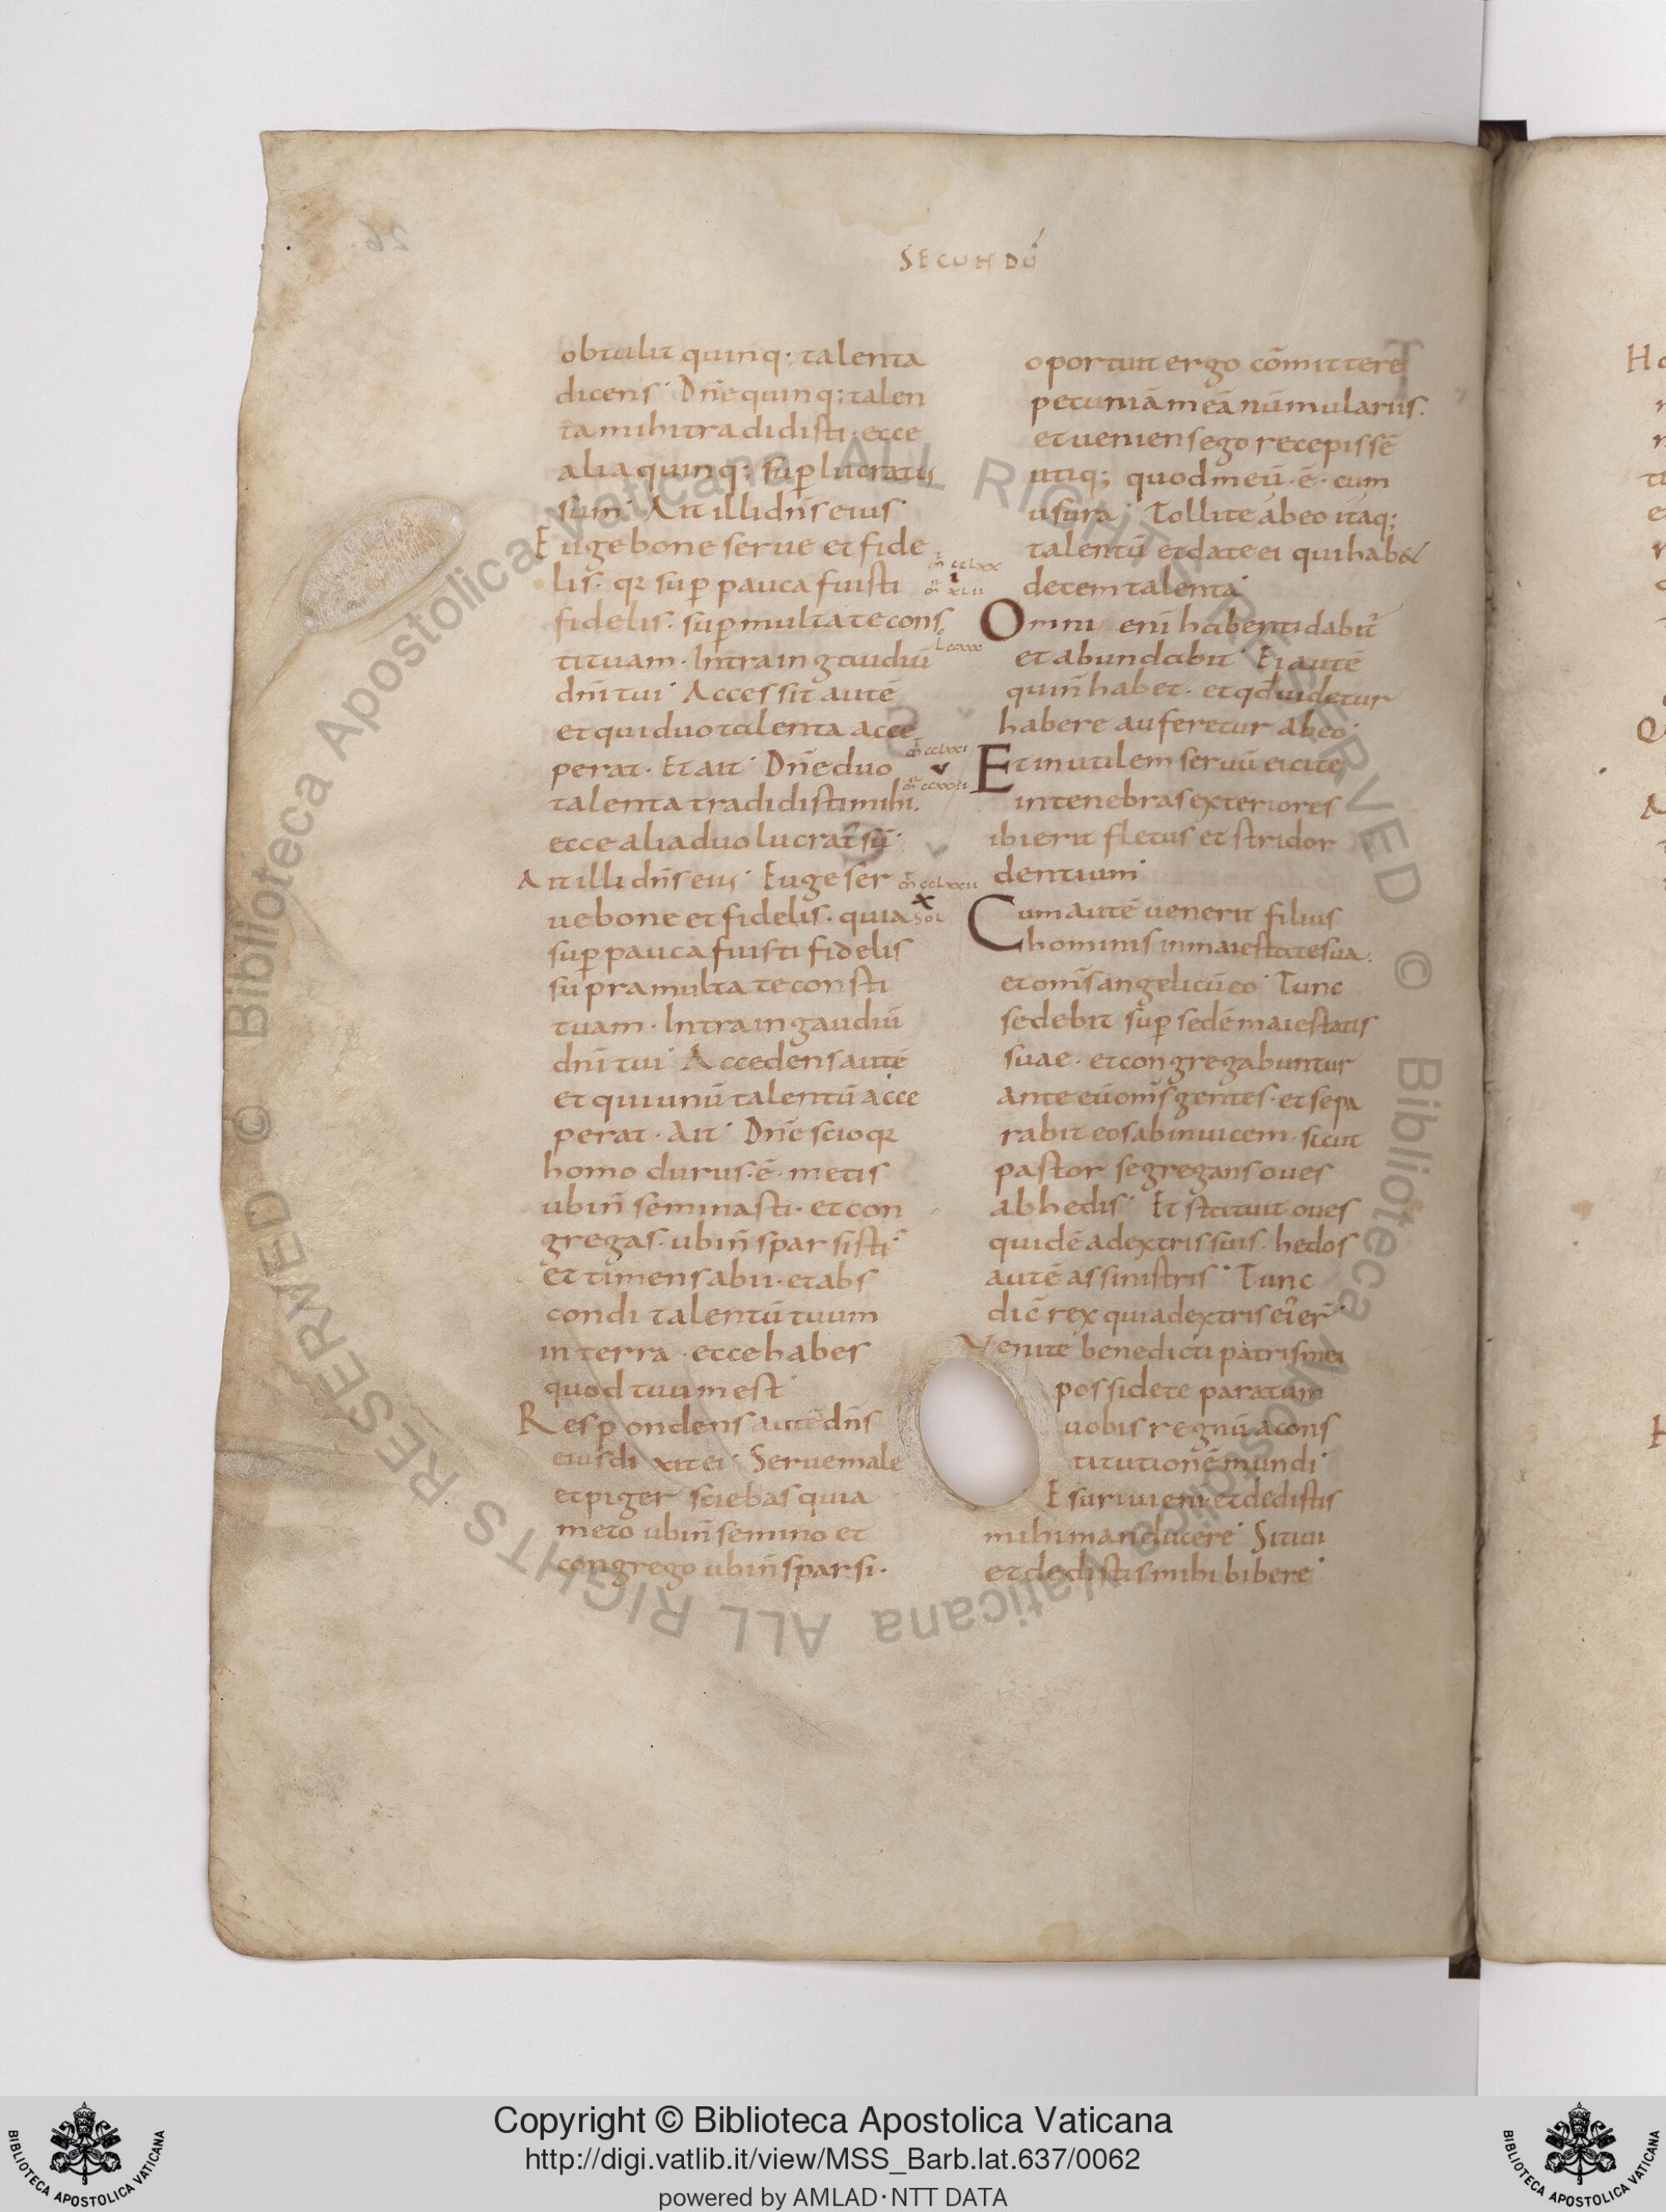 SECUNDŪ
obtulit quinq; talenta
dicens· Dn̄e quinq; talen
ta mihi tradidisti· ecce
alia quinq; sup̄ lucratus
sum· Ait illi dn̄s eius·
Euge bone serue et fide
lis· qr sup̄ pauca fuisti
fidelis· sup̄ multa te cons
tituam· Intra in gaudiū
dn̄i tui· Accessit autē
et qui duo talenta acce
perat· Et ait· Dn̄e duo
talenta tradidisti mihi·
ecce alia duo lucrat᷒ sū·
Ait illi dn̄s eius· Euge ser
ue bone et fidelis· quia
sup̄ pauca fuisti fidelis
supra multa te consti
tuam· Intra in gaudiū
dn̄i tui· Accedens autē
et qui unū talentū acce
perat· Ait· Dn̄e scio qr
homo durus· ē· metis
ubi n̄ seminasti· et con
gregas· ubi n̄ sparsisti·
et timens abii· et abs
condi talentū tuum
in terra· ecce habes
quod tuum est·
Respondens autē dn̄s
eius dixit ei· Serue male
et piger sciebas quia
meto ubi n̄ semino et
congrego ubi n̄ sparsi·
oportuit ergo cōmittere
pecuniā meā nūmulariis·
et ueniens ego recepissē
utiq; quod meū· ē· cum
usura· Tollite ab eo itaq;
talentū et date ei qui hab&
decem talenta·
Omni enī habenti dabit᷒
et abundabit· Ei autē
qui n̄ habet· et qd̄ uidetur
habere auferetur ab eo·
Et inutilem seruū eicite
in tenebras exteriores
ibi erit fletus et stridor
dentium·
Cum autē uenerit filius
hominis in maiestate sua·
et om̄s angeli cū eo· Tunc
sedebit sup̄ sedē maiestatis
suae· et congregabuntur
ante eū om̄s gentes· et sepa
rabit eos ab inuicem· sicut
pastor segregans oues
ab hedis· Et statuit oues
quidē a dextris suis· hedos
autē a sinistris· Tunc
dic̄ rex qui a dextris ei᷒ er̄·
Venite benedicti patris mei
possidete paratum
uobis regnū a cons
titutione mundi·
Esuriui enī et dedistis
mihi manducere· Sitiui
et dedistis mihi bibere·
Copyright © Biblioteca Apostolica Vaticana
http://digi.vatlib.it/view/MSS_Barb.lat.637/0062
powered by AMLAD·NTT DATA